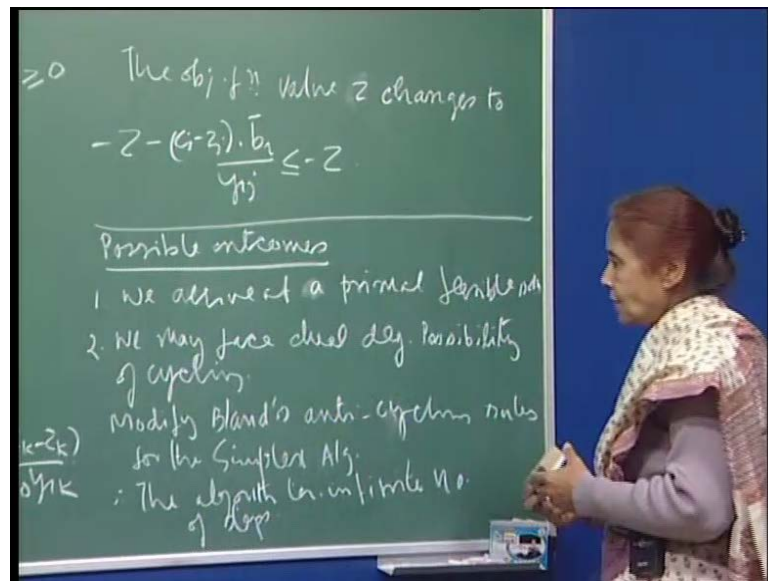 ≥0 The obj. fⁿ. value z changes to
-z - (cj - zj) . b̄r / yrj ≤ -z
Possible outcomes
1. We arrive at a primal feasible soln
2. We may face dual deg. Possibility
of cycling.
Modify Bland's anti-cycling rules
for the Simplex Alg.
k - zk) / yrk
∴ The algorith ter. in finite no.
of steps.